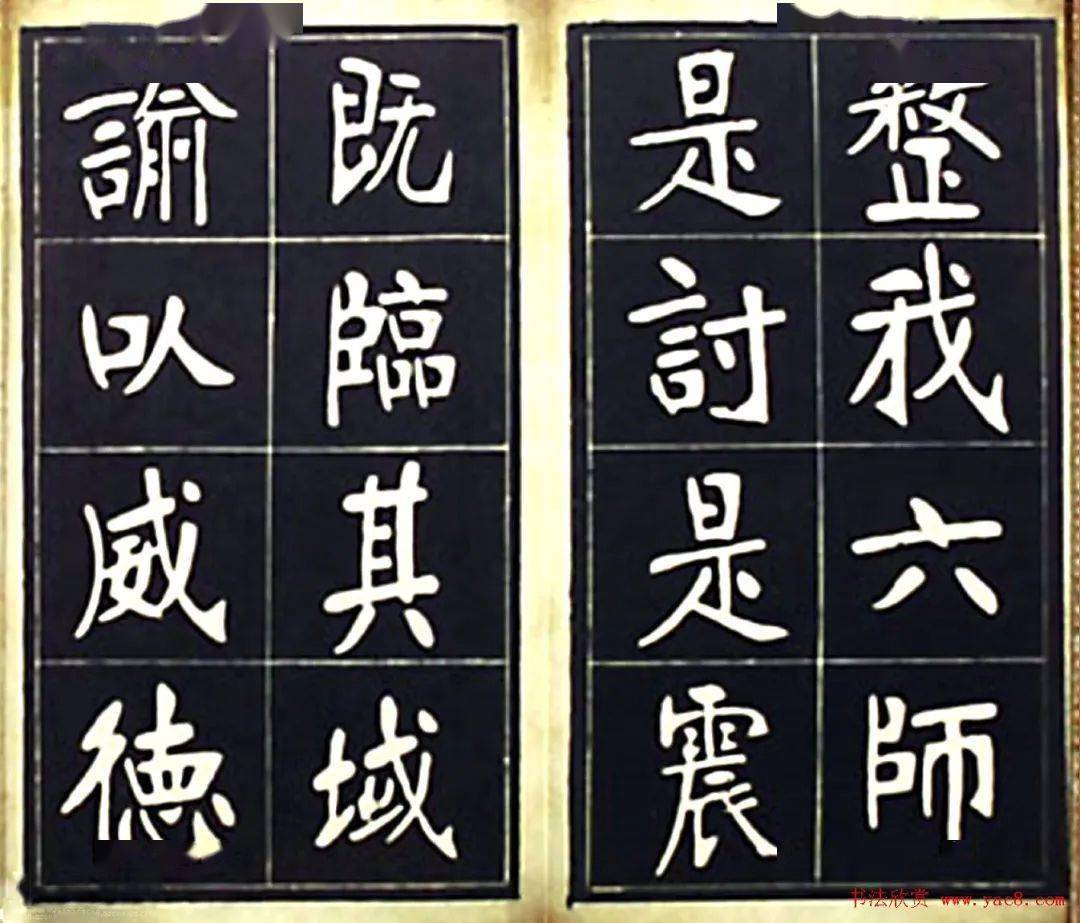 整我六師
是討是震
既臨其域
諭以威德
书法欣赏 www.yac8.com